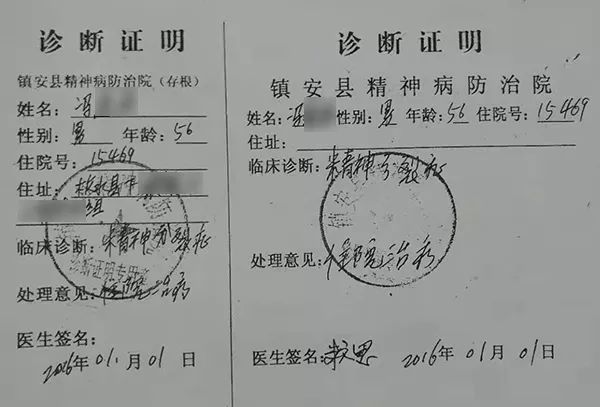 诊断证明
镇安县精神病防治院（存根）
姓名：冯
性别：男 年龄：56
住院号：15469
住址：柞水县
组
临床诊断：精神分裂症
处理意见：住院治疗
医生签名：
2016年01月01日
诊断证明专用章
诊断证明
镇安县精神病防治院
姓名：冯 性别：男 年龄：56 住院号：15469
住址：
临床诊断：精神分裂症
处理意见：住院治疗
医生签名： 2016年01月01日
镇安